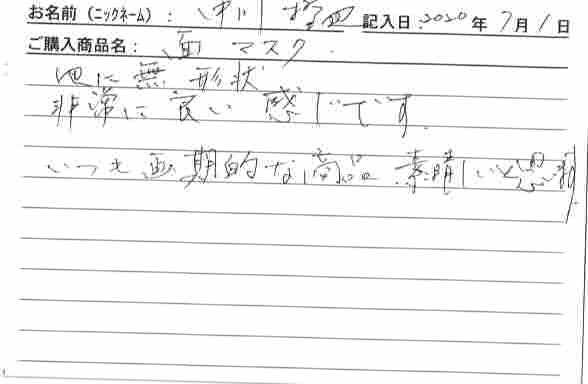 お名前（ニックネーム）： 中川 記入日：2020年7月1日
ご購入商品名： 面マスク
他に無形状
非常に良い感じです。
いつも画期的な商品素晴しいと思います